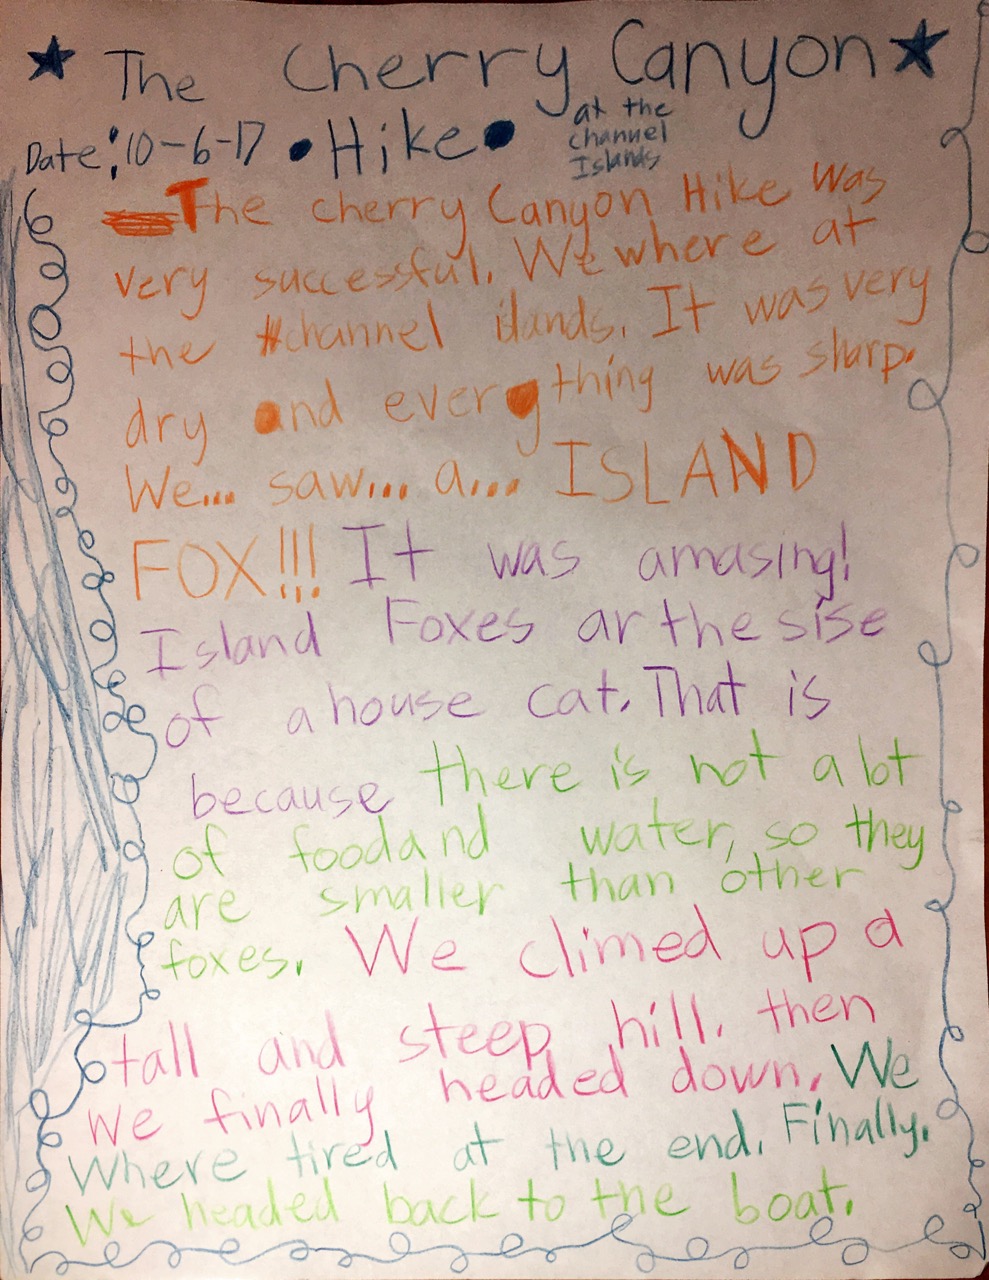 The Cherry Canyon
Date: 10-6-17 •Hike• at the
channel
Islands
The cherry Canyon Hike was
very successful. We where at
the channel ilands. It was very
dry and everything was sharp.
We... saw... a... ISLAND
FOX!!! It was amasing!
Island Foxes ar the sise
of a house cat. That is
because there is not a lot
of food and water, so they
are smaller than other
foxes. We climed up a
tall and steep hill. then
we finally headed down. We
Where tired at the end. Finally.
We headed back to the boat.